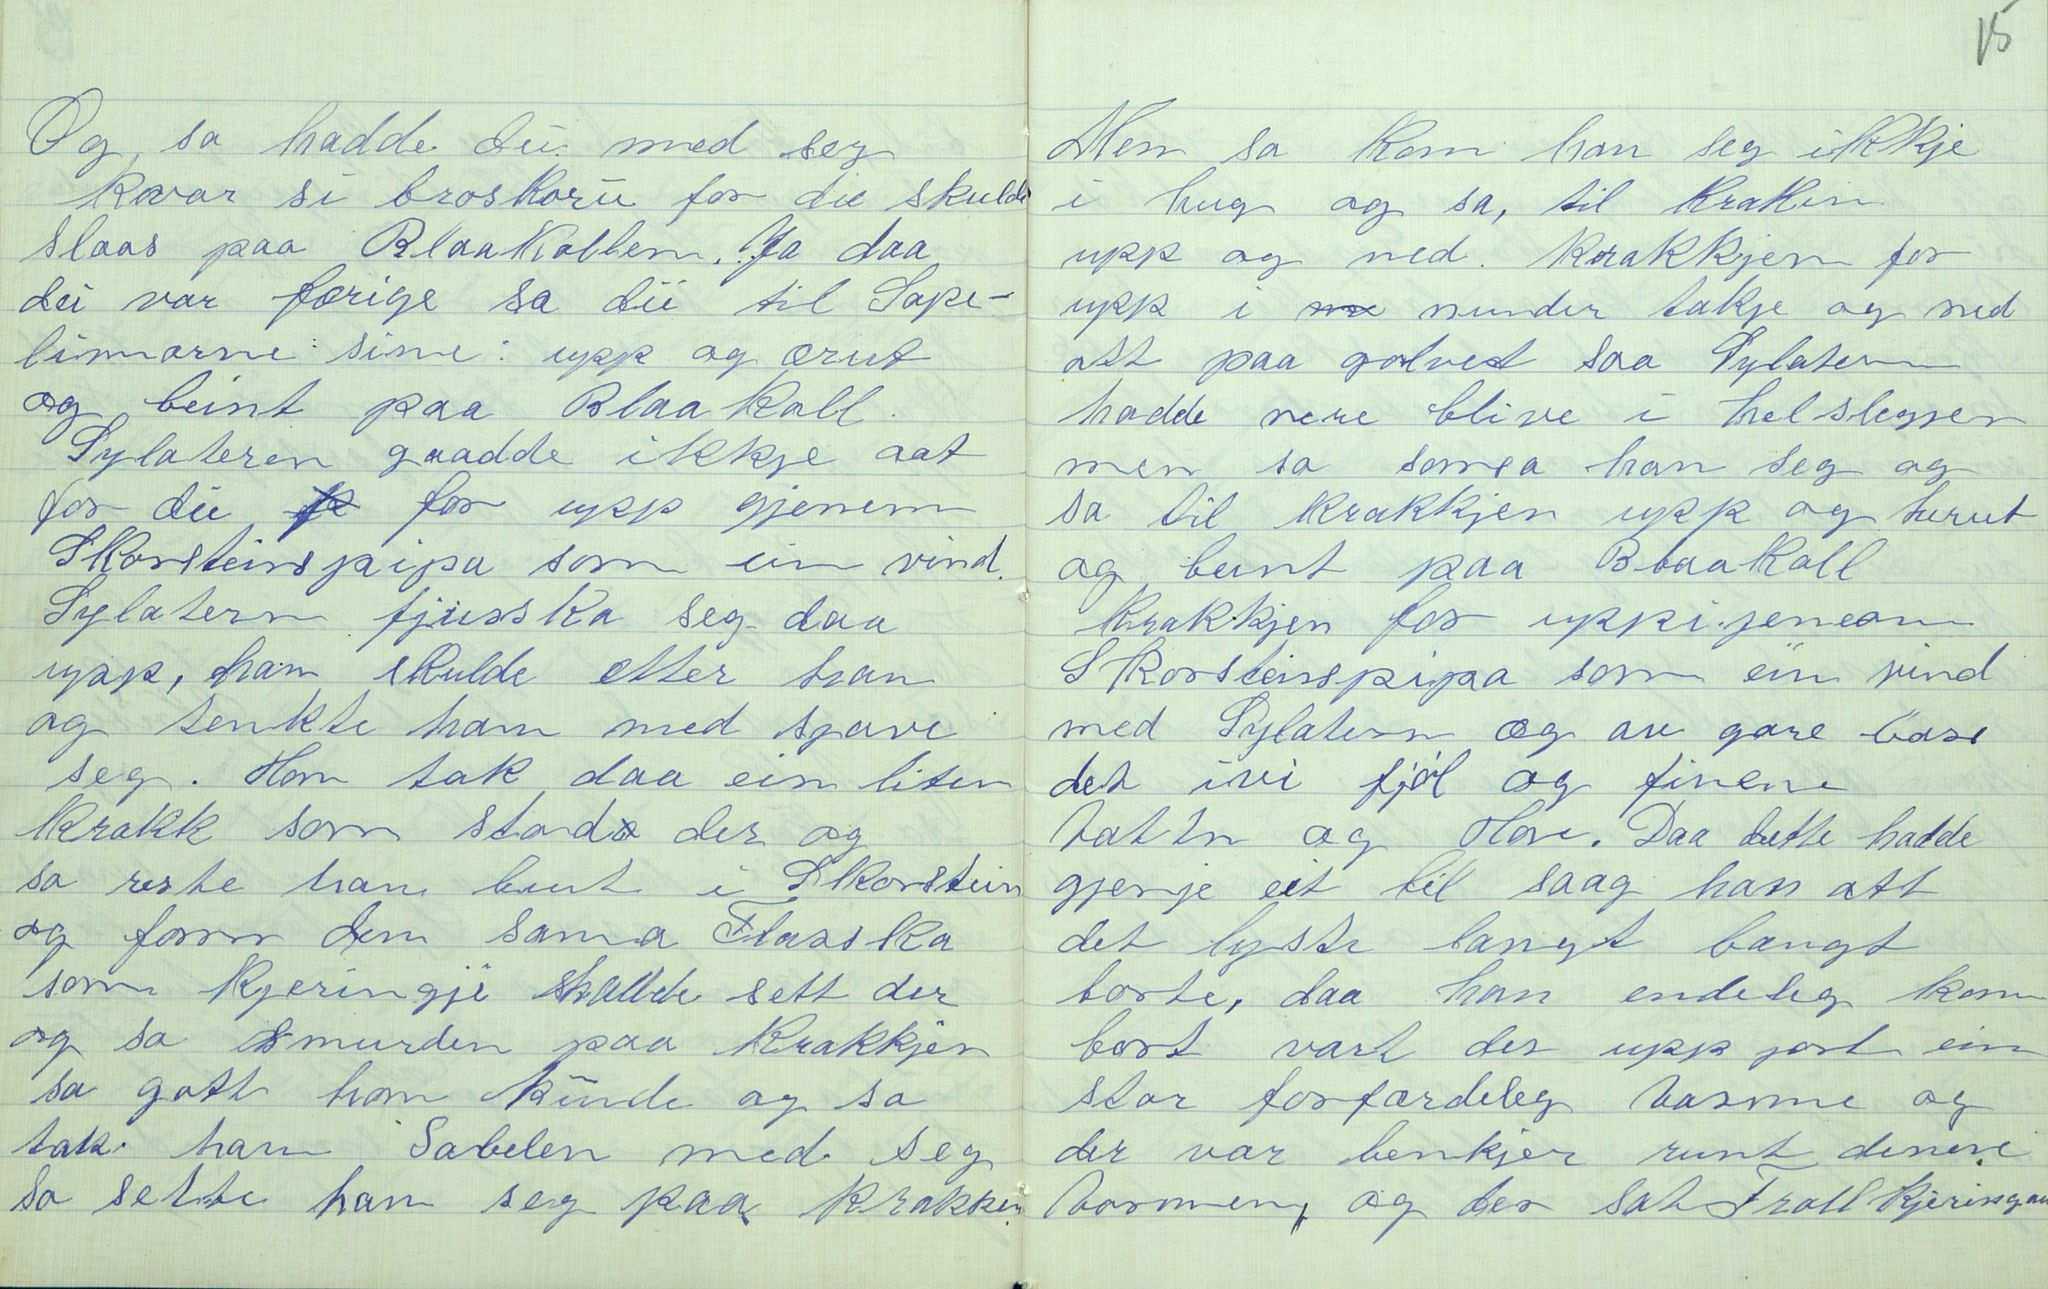 Og sa hadde dei med seg
kvar si broskoru for dei skulde
slaas paa Blaakollen. Ja daa
dei var færige sa dei til Sope-
limarne sine: upp og ærut
og beint paa Blaakoll.
Sylateren gaadde ikkje aat
for dei for upp gjenem
Skorsteinspipa som ein vind.
Sylatern fjusska seg daa
upp, han skulde etter han
og tenkte han med sjave
seg. Han tok daa ein liten
krakk som stod der og
sa reste han beint i Skorstein
og fann den sama Flasska
som kjeringji hadde sett der
og sa smurden paa krakkjen
so gott han kunde og sa
tok han Sabelen med seg
so sette han seg paa krakken
15
Men sa kom han seg ikkje
i hug og sa, til krakin
upp og ned. krakkjen for
upp i nunder takje og ned
att paa golvet saa Sylatern
hadde nere blive i helslegjen
men sa somea han seg og
sa til krakkjen upp og turut
og beint paa Blaakoll
krakkjen for uppi jeneom
Skorsteinspipa som ein vind
med Sylatern og av gare bar
det ivi fjøl og finene
Vatn og Hav. Daa dette hadde
gjenje eit til saag han att
det lyste langt langt
borte, daa han endeleg kom
bort vart der upp jort ein
stor forfærdeleg varme og
der var benkjer runt denne
varmen, og der sat Trollkjeringan